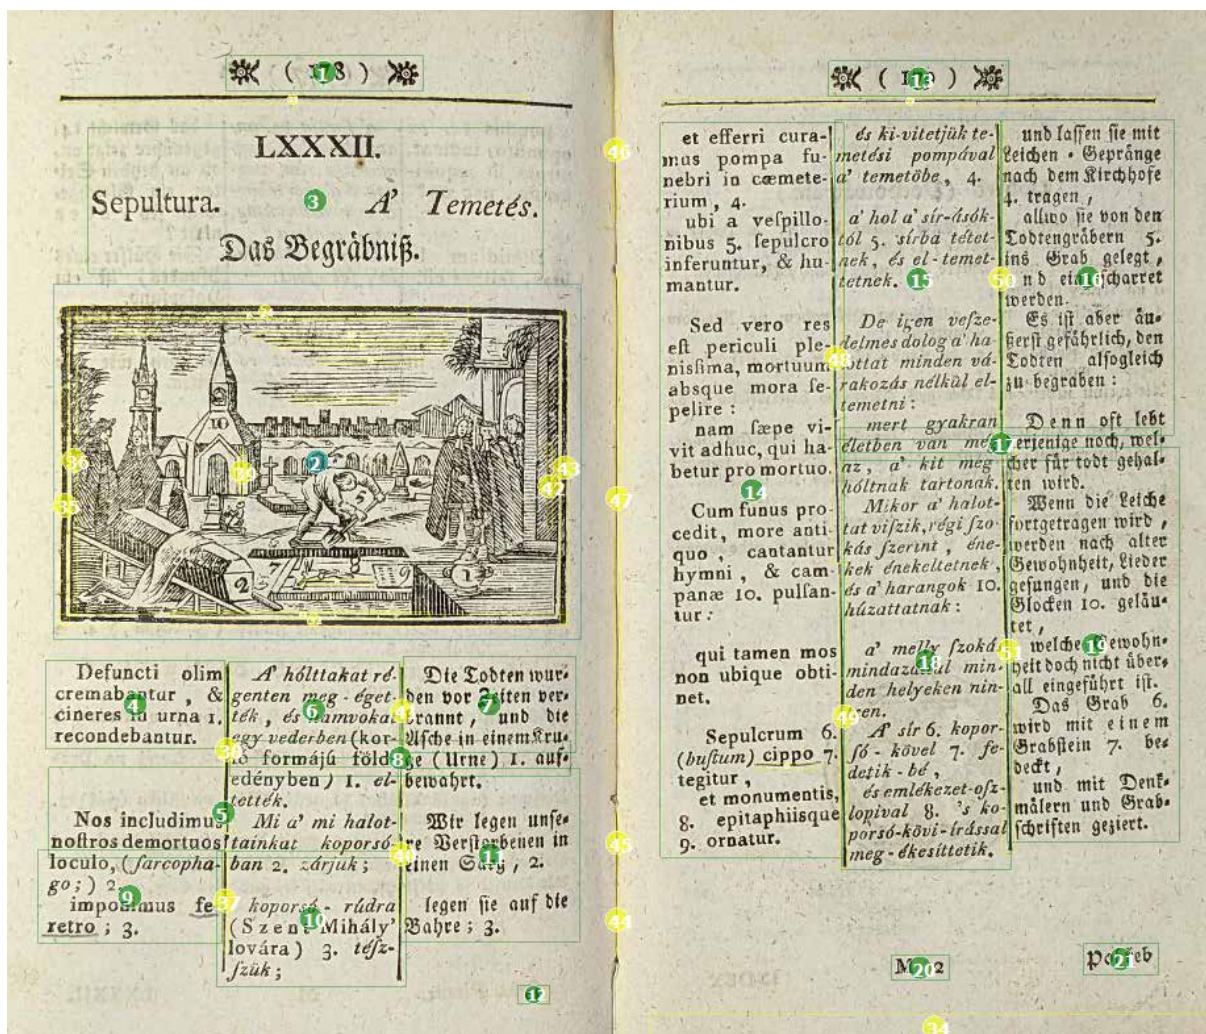 LXXXII.
Sepultura.
A' Temetés.
Das Begräbniß.
Defuncti olim
cremabantur, &
cineres in urna 1.
recondebantur.
Nos includimus
noſtros demortuos
loculo, (ſarcopha-
go;) 2.
imponimus fe-
retro; 3.
A' hólttakat ré-
genten meg-éget-
ték, és hamvokat
egy vederben (kor-
só formájú föld-
edényben) 1. el-
tették.
Mi a' mi halot-
tainkat koporsó-
ban 2. zárjuk;
koporsó-rúdra
(Szent Mihály'
lovára) 3. téſz-
ſzük;
Die Todten wur-
den vor Zeiten ver-
brannt, und die
Aſche in einem Kru-
ge (Urne) 1. auf-
bewahrt.
Wir legen unſe-
re Verſtorbenen in
einen Sarg, 2.
legen ſie auf die
Bahre; 3.
et efferri cura-
mus pompa fu-
nebri in cæmete-
rium, 4.
ubi a veſpillo-
nibus 5. ſepulcro
inferuntur, & hu-
mantur.
Sed vero res
eſt periculi ple-
niſſima, mortuum
absque mora ſe-
pelire:
nam ſæpe vi-
vit adhuc, qui ha-
betur pro mortuo.
Cum funus pro-
cedit, more anti-
quo, cantantur
hymni, & cam-
panæ 10. pulſan-
tur:
qui tamen mos
non ubique obti-
net.
Sepulcrum 6.
(buſtum) cippo 7.
tegitur,
et monumentis,
8. epitaphiisque
9. ornatur.
és ki-vitetjük te-
metési pompával
a' temetöbe, 4.
a' hol a' sír-ásók-
tól 5. sírba tétet-
nek, és el-temet-
tetnek.
De igen veſze-
delmes dolog a' ha-
lottat minden vá-
rakozás nélkül el-
temetni:
mert gyakran
életben van még
az, a' kit meg
hóltnak tartonak.
Mikor a' halot-
tat viſzik, régi ſzo-
kás ſzerint, éne-
kek énekeltetnek,
és a' harangok 10.
húzattatnak:
a' melly ſzokás
mindazáltal min-
den helyeken nin-
tsen.
A' sír 6. kopor-
ſó-kövel 7. fe-
detik-bé,
és emlékezet-oſz-
lopival 8. 's ko-
porsó-kövi-írással
meg-ékesíttetik.
und laſſen ſie mit
Leichen-Gepränge
nach dem Kirchhofe
4. tragen,
allwo ſie von den
Todtengräbern 5.
ins Grab gelegt,
und eingeſcharret
werden.
Es iſt aber äu-
ßerſt gefährlich, den
Todten alſogleich
zu begraben:
Denn oft lebt
derjenige noch, wel-
cher für todt gehal-
ten wird.
Wenn die Leiche
fortgetragen wird,
werden nach alter
Gewohnheit, Lieder
geſungen, und die
Glocken 10. geläu-
tet,
welche Gewohn-
heit doch nicht über-
all eingeführt iſt.
Das Grab 6.
wird mit einem
Grabſtein 7. be-
deckt,
und mit Denk-
mälern und Grab-
ſchriften geziert.